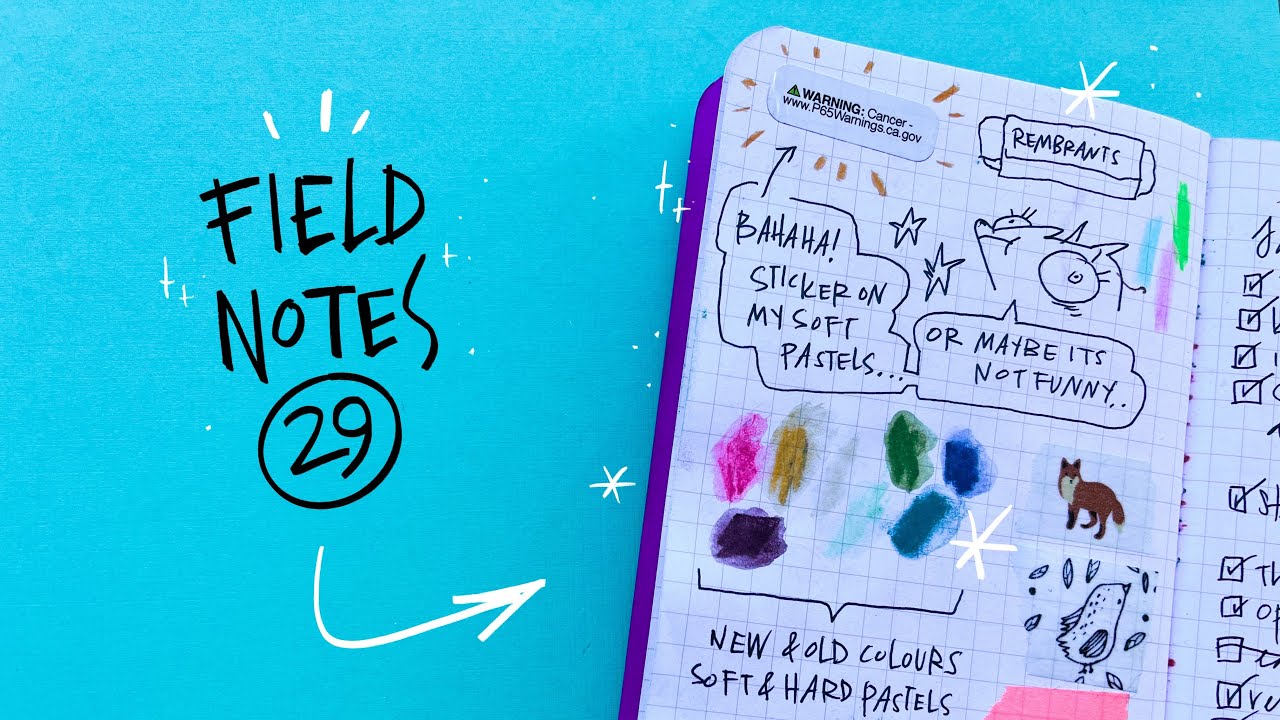 FIELD
NOTES
29
WARNING: Cancer -
www.P65Warnings.ca.gov
REMBRANTS
BAHAHA!
STICKER ON
MY SOFT
PASTELS...
OR MAYBE ITS
NOT FUNNY..
NEW & OLD COLOURS
SOFT & HARD PASTELS